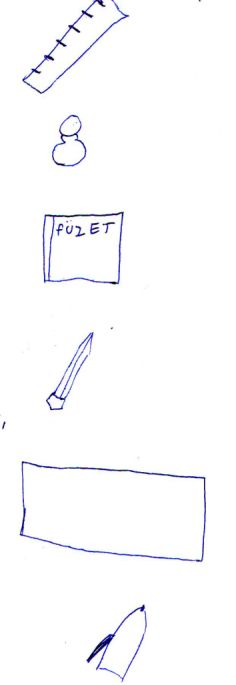 FÜZET